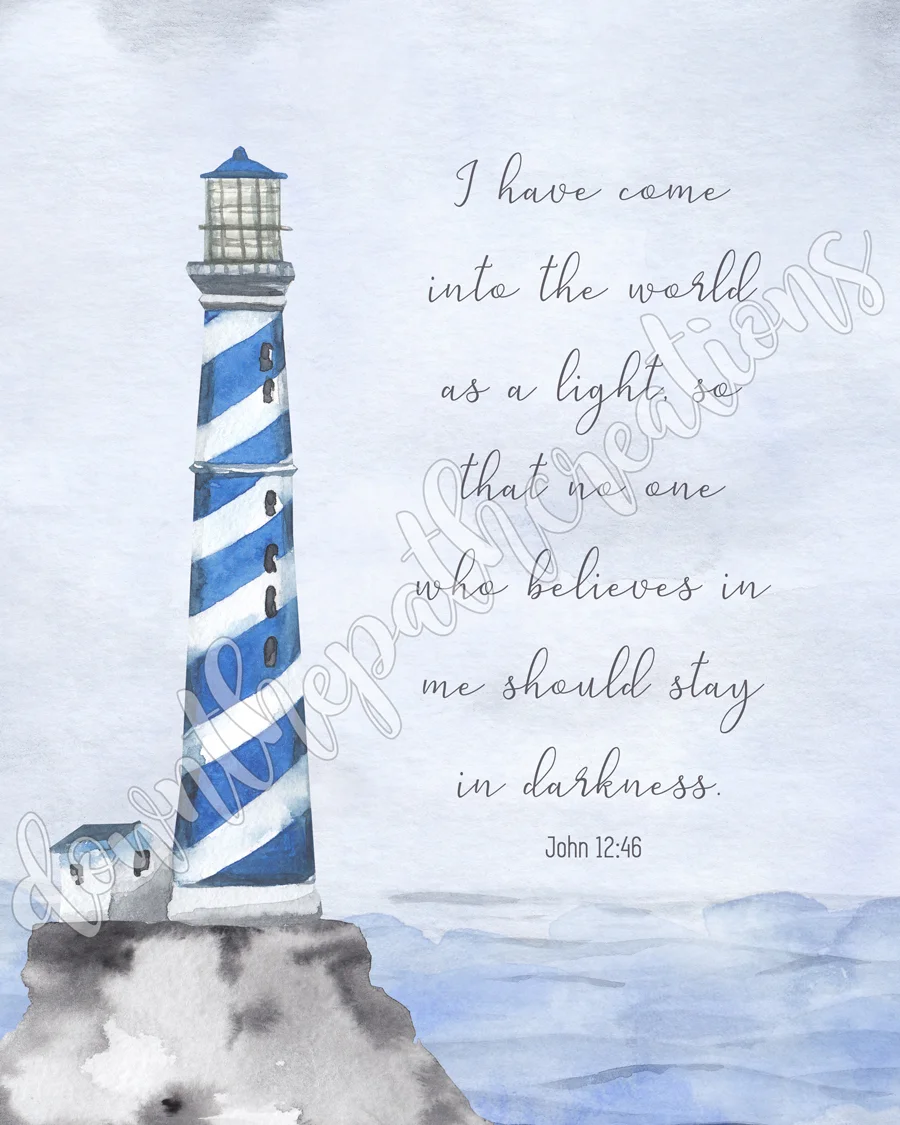 I have come
into the world
as a light, so
that no one
who believes in
me should stay
in darkness.
John 12:46
downthepathcreations